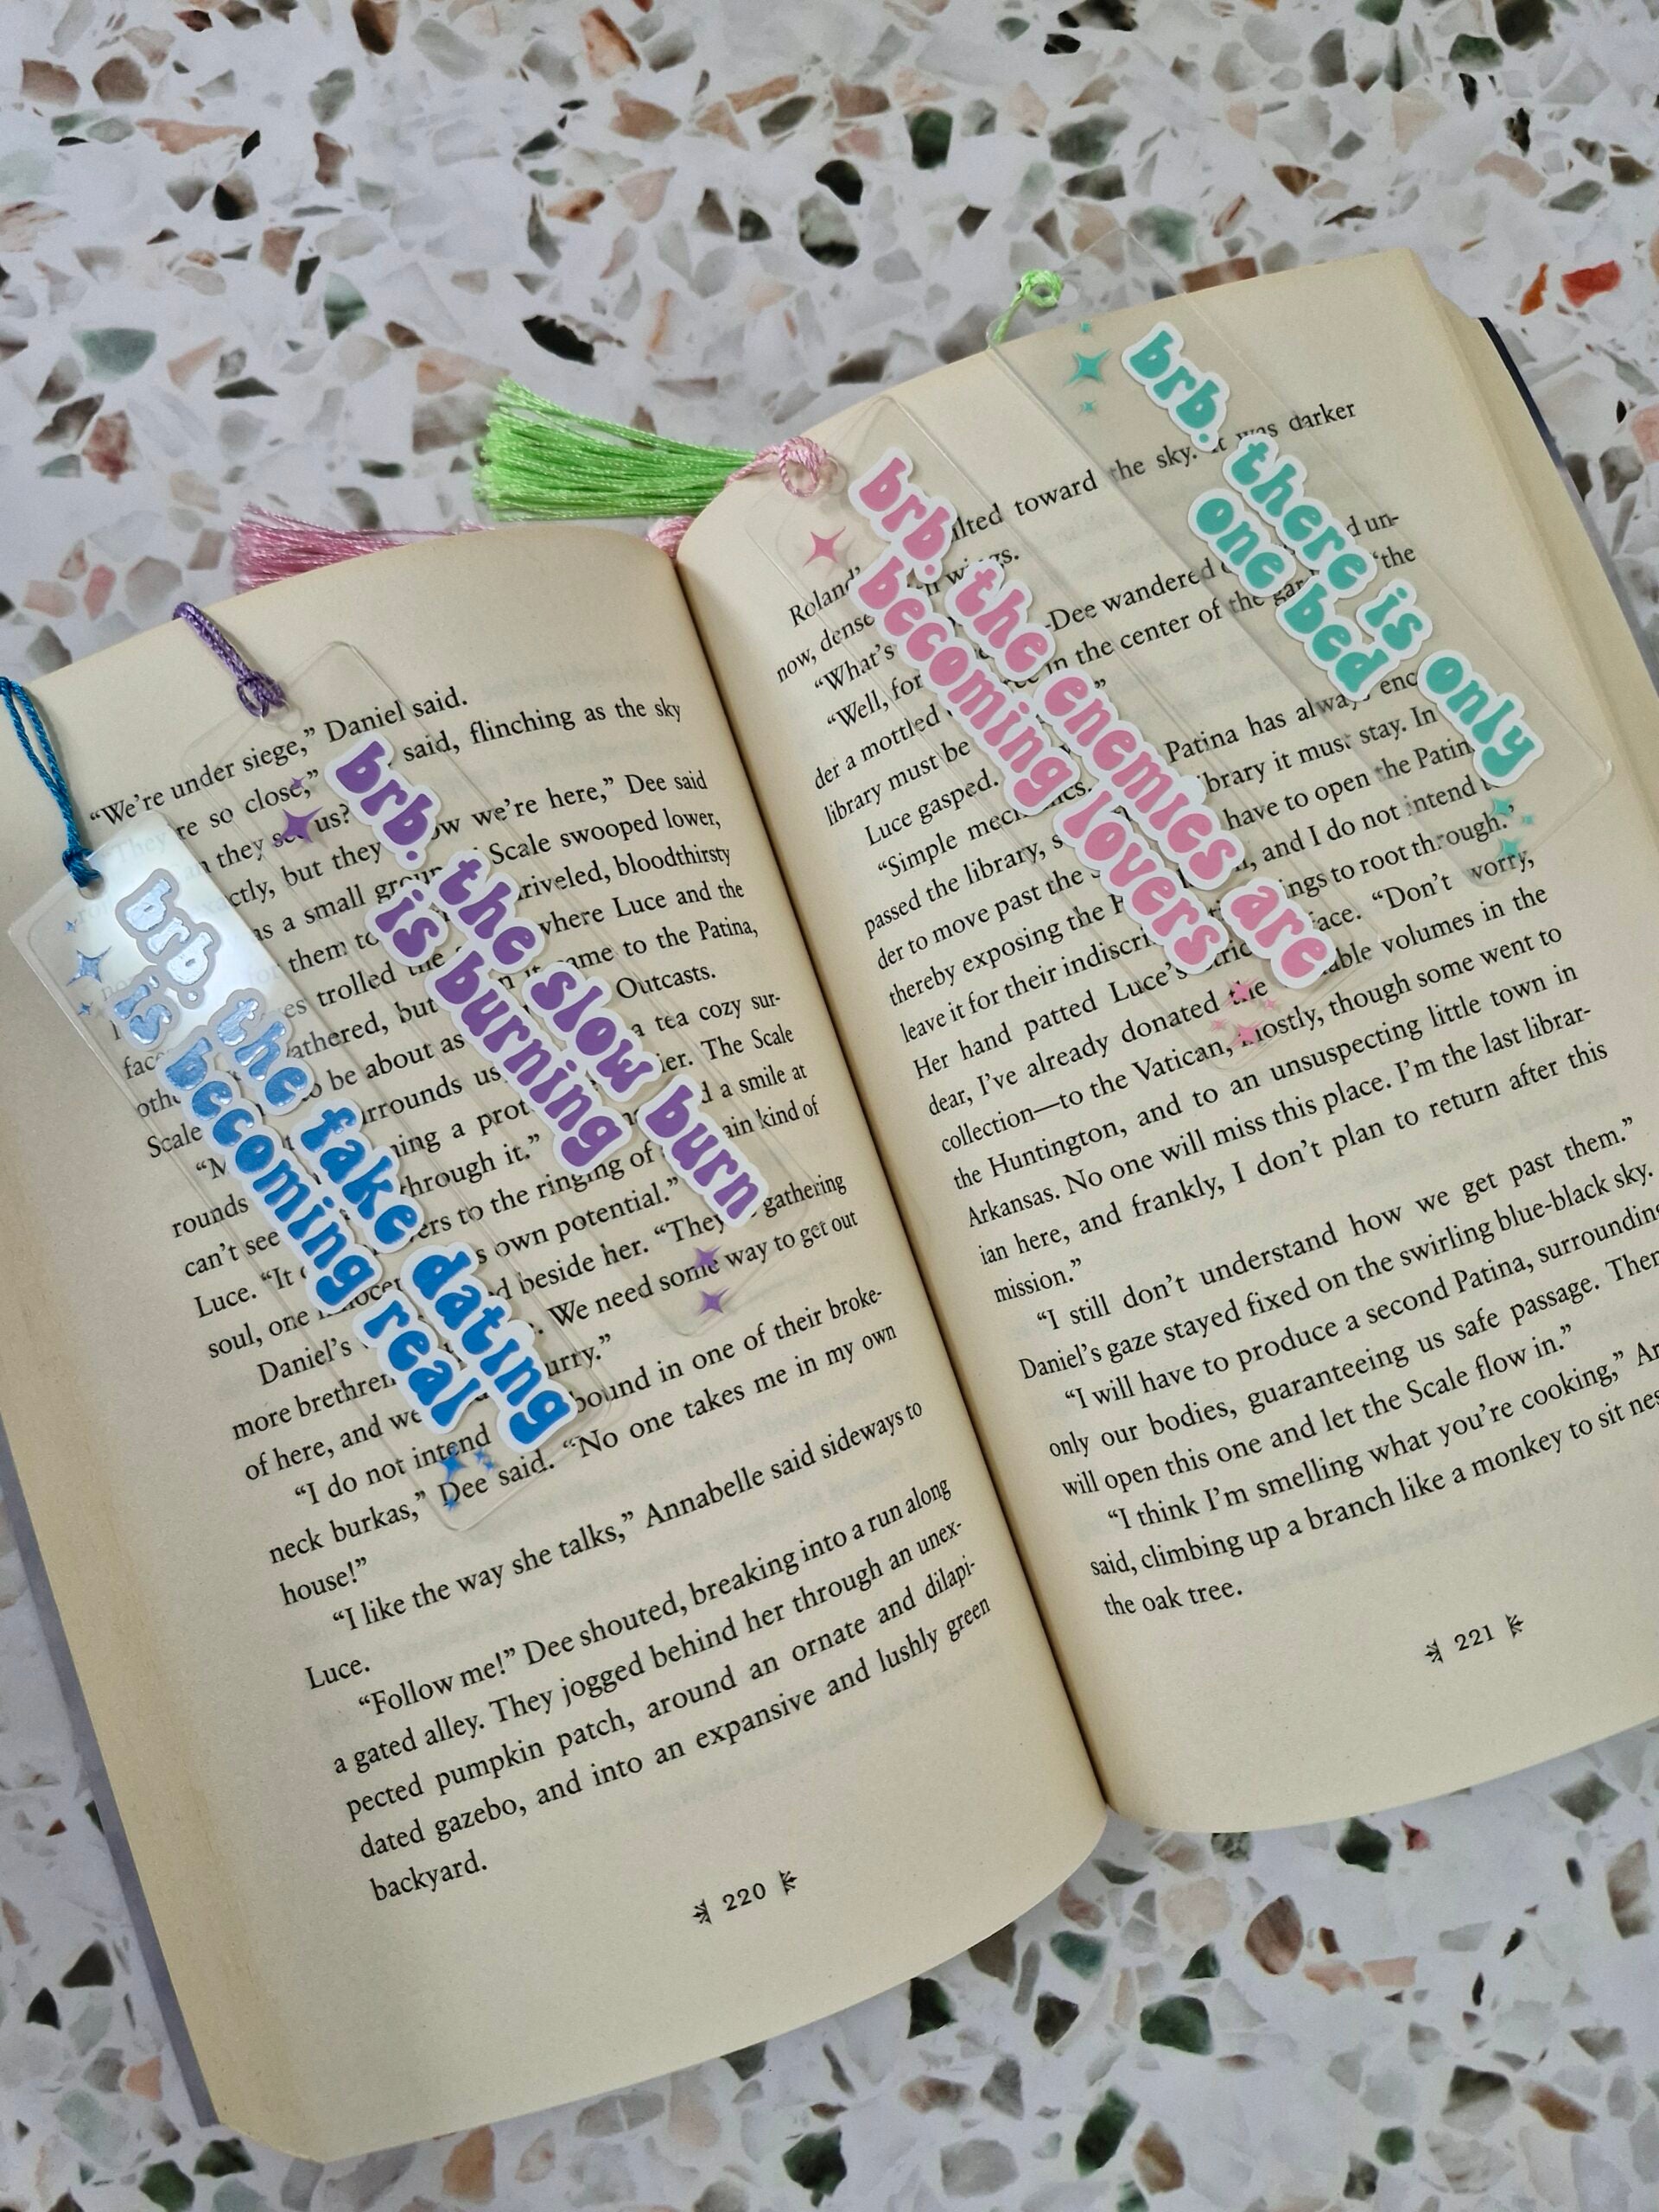 brb. the fake dating
is becoming real
brb. the slow burn
is burning
brb. the enemies are
becoming lovers
brb. there is only
one bed
“We’re under siege,” Daniel said.
re so close,” said, flinching as the sky
they us?
ctly, but they ow we’re here,” Dee said
as a small group Scale swooped lower,
riveled, bloodthirsty
for them to where Luce and the
es trolled the came to the Patina,
athered, but Outcasts.
to be about as a tea cozy sur-
Scale rrounds us ier. The Scale
ning a prot d a smile at
rounds through it.” ain kind of
can’t see ers to the ringing of
Luce. “It s own potential.” gathering
soul, one d beside her. “They
Daniel’s We need some way to get out
more brethren urry.”
of here, and we bound in one of their broke-
“I do not intend
neck burkas,” Dee said. “No one takes me in my own
house!”
“I like the way she talks,” Annabelle said sideways to
Luce.
“Follow me!” Dee shouted, breaking into a run along
a gated alley. They jogged behind her through an unex-
pected pumpkin patch, around an ornate and dilapi-
dated gazebo, and into an expansive and lushly green
backyard.
220
Roland’ ilted toward the sky. It was darker
now, dense wings.
“What’s -Dee wandered d un-
“Well, for in the center of the gar “the
der a mottled
library must be Patina has always enc
Luce gasped. library it must stay. In
“Simple mechanics. have to open the Patin
passed the library, s and I do not intend t
der to move past the ings to root through.”
thereby exposing the face. “Don’t worry,
leave it for their indiscri able volumes in the
Her hand patted Luce’s
dear, I’ve already donated the mostly, though some went to
collection—to the Vatican, mostly, though some went to
the Huntington, and to an unsuspecting little town in
Arkansas. No one will miss this place. I’m the last librar-
ian here, and frankly, I don’t plan to return after this
mission.”
“I still don’t understand how we get past them.”
Daniel’s gaze stayed fixed on the swirling blue-black sky.
“I will have to produce a second Patina, surrounding
only our bodies, guaranteeing us safe passage. Then
will open this one and let the Scale flow in.”
“I think I’m smelling what you’re cooking,” Ar
said, climbing up a branch like a monkey to sit nes
the oak tree.
221